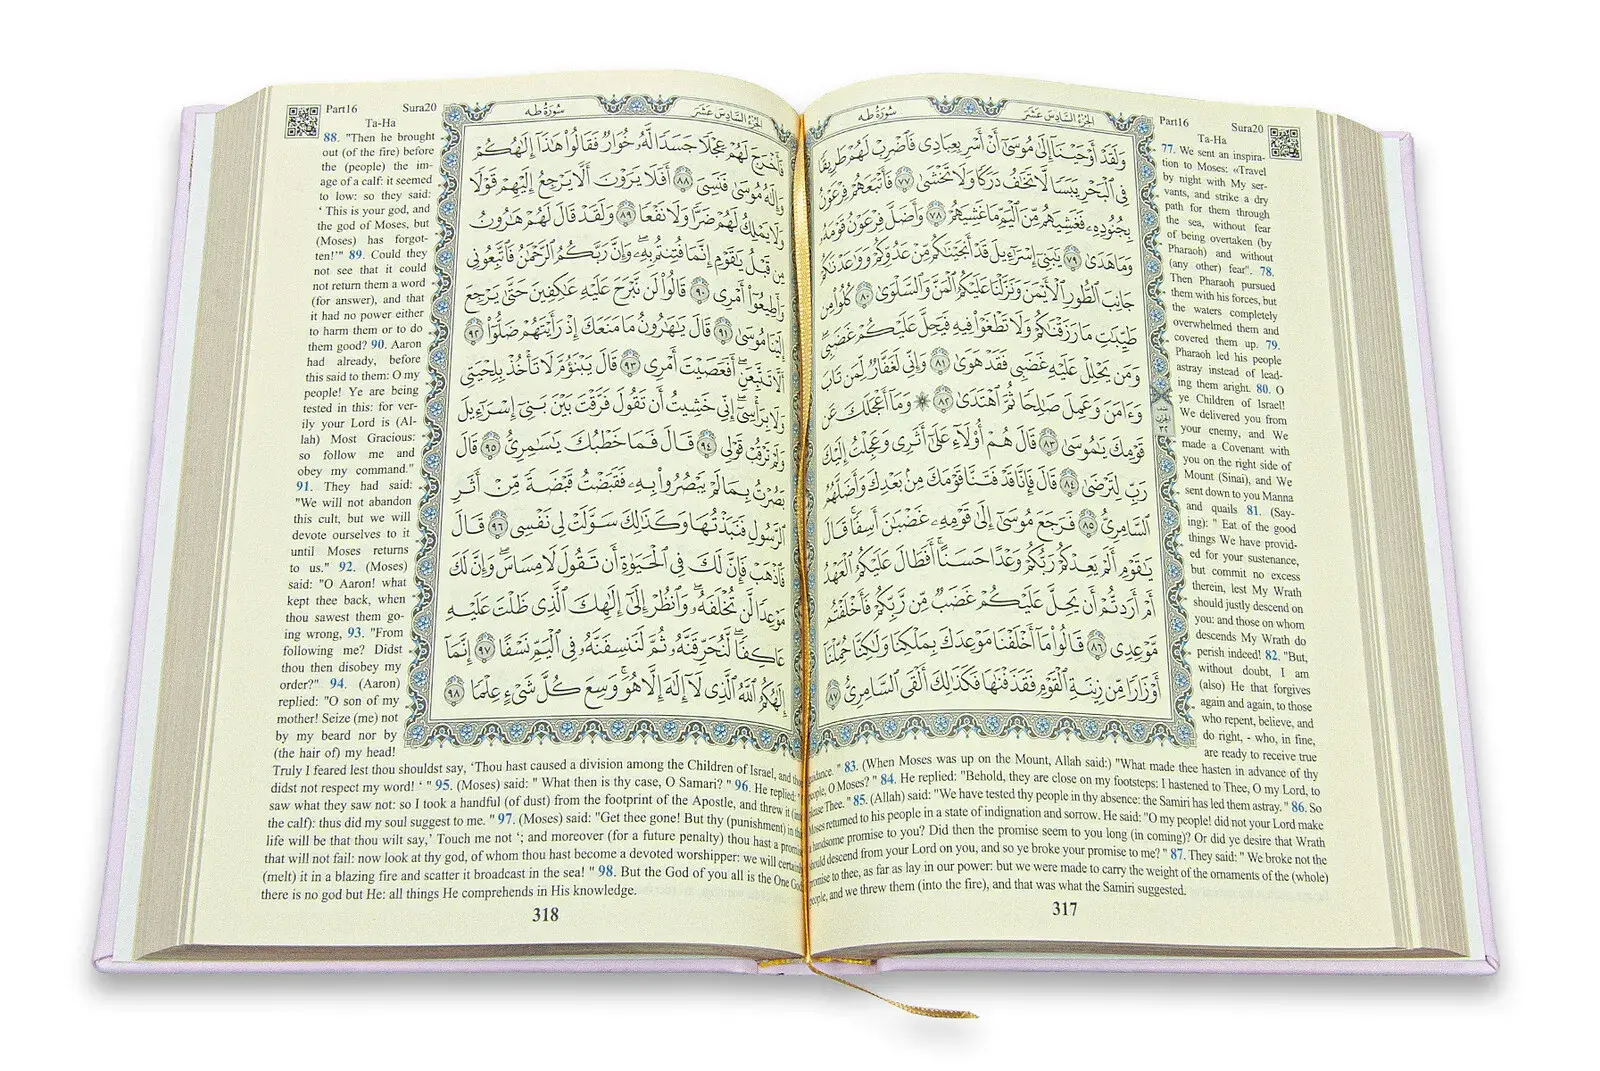 Part16
Sura20
Ta-Ha
سُورَةُ طه
الجُزءُ السَّادِسَ عَشَرَ
وَلَقَدْ أَوْحَيْنَآ إِلَىٰ مُوسَىٰٓ أَنْ أَسْرِ بِعِبَادِى فَٱضْرِبْ لَهُمْ طَرِيقًا
فِى ٱلْبَحْرِ يَبَسًا لَّا تَخَٰفُ دَرَكًا وَلَا تَخْشَىٰ ﴿٧٧﴾ فَأَتْبَعَهُمْ فِرْعَوْنُ
بِجُنُودِهِۦ فَغَشِيَهُم مِّنَ ٱلْيَمِّ مَا غَشِيَهُمْ ﴿٧٨﴾ وَأَضَلَّ فِرْعَوْنُ قَوْمَهُۥ
وَمَا هَدَىٰ ﴿٧٩﴾ يَٰبَنِىٓ إِسْرَٰٓءِيلَ قَدْ أَنجَيْنَٰكُم مِّنْ عَدُوِّكُمْ وَوَٰعَدْنَٰكُمْ
جَانِبَ ٱلطُّورِ ٱلْأَيْمَنَ وَنَزَّلْنَا عَلَيْكُمُ ٱلْمَنَّ وَٱلسَّلْوَىٰ ﴿٨٠﴾ كُلُوا۟ مِن
طَيِّبَٰتِ مَا رَزَقْنَٰكُمْ وَلَا تَطْغَوْا۟ فِيهِ فَيَحِلَّ عَلَيْكُمْ غَضَبِى
وَمَن يَحْلِلْ عَلَيْهِ غَضَبِى فَقَدْ هَوَىٰ ﴿٨١﴾ وَإِنِّى لَغَفَّارٌ لِّمَن تَابَ
وَءَامَنَ وَعَمِلَ صَٰلِحًا ثُمَّ ٱهْتَدَىٰ ﴿٨٢﴾ ۞ وَمَآ أَعْجَلَكَ عَن
قَوْمِكَ يَٰمُوسَىٰ ﴿٨٣﴾ قَالَ هُمْ أُو۟لَآءِ عَلَىٰٓ أَثَرِى وَعَجِلْتُ إِلَيْكَ
رَبِّ لِتَرْضَىٰ ﴿٨٤﴾ قَالَ فَإِنَّا قَدْ فَتَنَّا قَوْمَكَ مِنۢ بَعْدِكَ وَأَضَلَّهُمُ
ٱلسَّامِرِىُّ ﴿٨٥﴾ فَرَجَعَ مُوسَىٰٓ إِلَىٰ قَوْمِهِۦ غَضْبَٰنَ أَسِفًا ۚ قَالَ
يَٰقَوْمِ أَلَمْ يَعِدْكُمْ رَبُّكُمْ وَعْدًا حَسَنًا ۚ أَفَطَالَ عَلَيْكُمُ ٱلْعَهْدُ
أَمْ أَرَدتُّمْ أَن يَحِلَّ عَلَيْكُمْ غَضَبٌ مِّن رَّبِّكُمْ فَأَخْلَفْتُم
مَّوْعِدِى ﴿٨٦﴾ قَالُوا۟ مَآ أَخْلَفْنَا مَوْعِدَكَ بِمَلْكِنَا وَلَٰكِنَّا حُمِّلْنَآ
أَوْزَارًا مِّن زِينَةِ ٱلْقَوْمِ فَقَذَفْنَٰهَا فَكَذَٰلِكَ أَلْقَى ٱلسَّامِرِىُّ ﴿٨٧﴾
77. We sent an inspira-
tion to Moses: «Travel
by night with My ser-
vants, and strike a dry
path for them through
the sea, without fear
of being overtaken (by
Pharaoh) and without
(any other) fear". 78.
Then Pharaoh pursued
them with his forces, but
the waters completely
overwhelmed them and
covered them up. 79.
Pharaoh led his people
astray instead of lead-
ing them aright. 80. O
ye Children of Israel!
We delivered you from
your enemy, and We
made a Covenant with
you on the right side of
Mount (Sinai), and We
sent down to you Manna
and quails 81. (Say-
ing): " Eat of the good
things We have provid-
ed for your sustenance,
but commit no excess
therein, lest My Wrath
should justly descend on
you: and those on whom
descends My Wrath do
perish indeed! 82. "But,
without doubt, I am
(also) He that forgives
again and again, to those
who repent, believe, and
do right, - who, in fine,
are ready to receive true
guidance. " 83. (When Moses was up on the Mount, Allah said:) "What made thee hasten in advance of thy
people, O Moses? " 84. He replied: "Behold, they are close on my footsteps: I hastened to Thee, O my Lord, to
please Thee. " 85. (Allah) said: "We have tested thy people in thy absence: the Samiri has led them astray." 86. So
Moses returned to his people in a state of indignation and sorrow. He said: "O my people! did not your Lord make
a handsome promise to you? Did then the promise seem to you long (in coming)? Or did ye desire that Wrath
should descend from your Lord on you, and so ye broke your promise to me? " 87. They said: " We broke not the
promise to thee, as far as lay in our power: but we were made to carry the weight of the ornaments of the (whole)
people, and we threw them (into the fire), and that was what the Samiri suggested.
317
Part16
Sura20
Ta-Ha
سُورَةُ طه
الجُزءُ السَّادِسَ عَشَرَ
فَأَخْرَجَ لَهُمْ عِجْلًا جَسَدًا لَّهُۥ خُوَارٌ فَقَالُوا۟ هَٰذَآ إِلَٰهُكُمْ
وَإِلَٰهُ مُوسَىٰ فَنَسِىَ ﴿٨٨﴾ أَفَلَا يَرَوْنَ أَلَّا يَرْجِعُ إِلَيْهِمْ قَوْلًا
وَلَا يَمْلِكُ لَهُمْ ضَرًّا وَلَا نَفْعًا ﴿٨٩﴾ وَلَقَدْ قَالَ لَهُمْ هَٰرُونُ
مِن قَبْلُ يَٰقَوْمِ إِنَّمَا فُتِنتُم بِهِۦ ۖ وَإِنَّ رَبَّكُمُ ٱلرَّحْمَٰنُ فَٱتَّبِعُونِى
وَأَطِيعُوٓا۟ أَمْرِى ﴿٩٠﴾ قَالُوا۟ لَن نَّبْرَحَ عَلَيْهِ عَٰكِفِينَ حَتَّىٰ يَرْجِعَ
إِلَيْنَا مُوسَىٰ ﴿٩١﴾ قَالَ يَٰهَٰرُونُ مَا مَنَعَكَ إِذْ رَأَيْتَهُمْ ضَلُّوٓا۟ ﴿٩٢﴾
أَلَّا تَتَّبِعَنِ ۖ أَفَعَصَيْتَ أَمْرِى ﴿٩٣﴾ قَالَ يَبْنَؤُمَّ لَا تَأْخُذْ بِلِحْيَتِى
وَلَا بِرَأْسِىٓ ۖ إِنِّى خَشِيتُ أَن تَقُولَ فَرَّقْتَ بَيْنَ بَنِىٓ إِسْرَٰٓءِيلَ
وَلَمْ تَرْقُبْ قَوْلِى ﴿٩٤﴾ قَالَ فَمَا خَطْبُكَ يَٰسَٰمِرِىُّ ﴿٩٥﴾ قَالَ
بَصُرْتُ بِمَا لَمْ يَبْصُرُوا۟ بِهِۦ فَقَبَضْتُ قَبْضَةً مِّنْ أَثَرِ
ٱلرَّسُولِ فَنَبَذْتُهَا وَكَذَٰلِكَ سَوَّلَتْ لِى نَفْسِى ﴿٩٦﴾ قَالَ
فَٱذْهَبْ فَإِنَّ لَكَ فِى ٱلْحَيَوٰةِ أَن تَقُولَ لَا مِسَاسَ ۖ وَإِنَّ لَكَ
مَوْعِدًا لَّن تُخْلَفَهُۥ ۖ وَٱنظُرْ إِلَىٰٓ إِلَٰهِكَ ٱلَّذِى ظَلْتَ عَلَيْهِ
عَاكِفًا ۖ لَّنُحَرِّقَنَّهُۥ ثُمَّ لَنَنسِفَنَّهُۥ فِى ٱلْيَمِّ نَسْفًا ﴿٩٧﴾ إِنَّمَآ
إِلَٰهُكُمُ ٱللَّهُ ٱلَّذِى لَآ إِلَٰهَ إِلَّا هُوَ ۚ وَسِعَ كُلَّ شَىْءٍ عِلْمًا ﴿٩٨﴾
88. "Then he brought
out (of the fire) before
the (people) the im-
age of a calf: it seemed
to low: so they said:
‘ This is your god, and
the god of Moses, but
(Moses) has forgot-
ten!’" 89. Could they
not see that it could
not return them a word
(for answer), and that
it had no power either
to harm them or to do
them good? 90. Aaron
had already, before
this said to them: O my
people! Ye are being
tested in this: for ver-
ily your Lord is (Al-
lah) Most Gracious:
so follow me and
obey my command."
91. They had said:
"We will not abandon
this cult, but we will
devote ourselves to it
until Moses returns
to us." 92. (Moses)
said: "O Aaron! what
kept thee back, when
thou sawest them go-
ing wrong, 93. "From
following me? Didst
thou then disobey my
order?" 94. (Aaron)
replied: "O son of my
mother! Seize (me) not
by my beard nor by
(the hair of) my head!
Truly I feared lest thou shouldst say, ‘Thou hast caused a division among the Children of Israel, and
didst not respect my word! ‘ " 95. (Moses) said: " What then is thy case, O Samari? " 96. He replied: "
saw what they saw not: so I took a handful (of dust) from the footprint of the Apostle, and threw it (
the calf): thus did my soul suggest to me. " 97. (Moses) said: "Get thee gone! But thy (punishment) in
life will be that thou wilt say,’ Touch me not ‘; and moreover (for a future penalty) thou hast a
that will not fail: now look at thy god, of whom thou hast become a devoted worshipper: we will
(melt) it in a blazing fire and scatter it broadcast in the sea! " 98. But the God of you all is the One
there is no god but He: all things He comprehends in His knowledge.
318